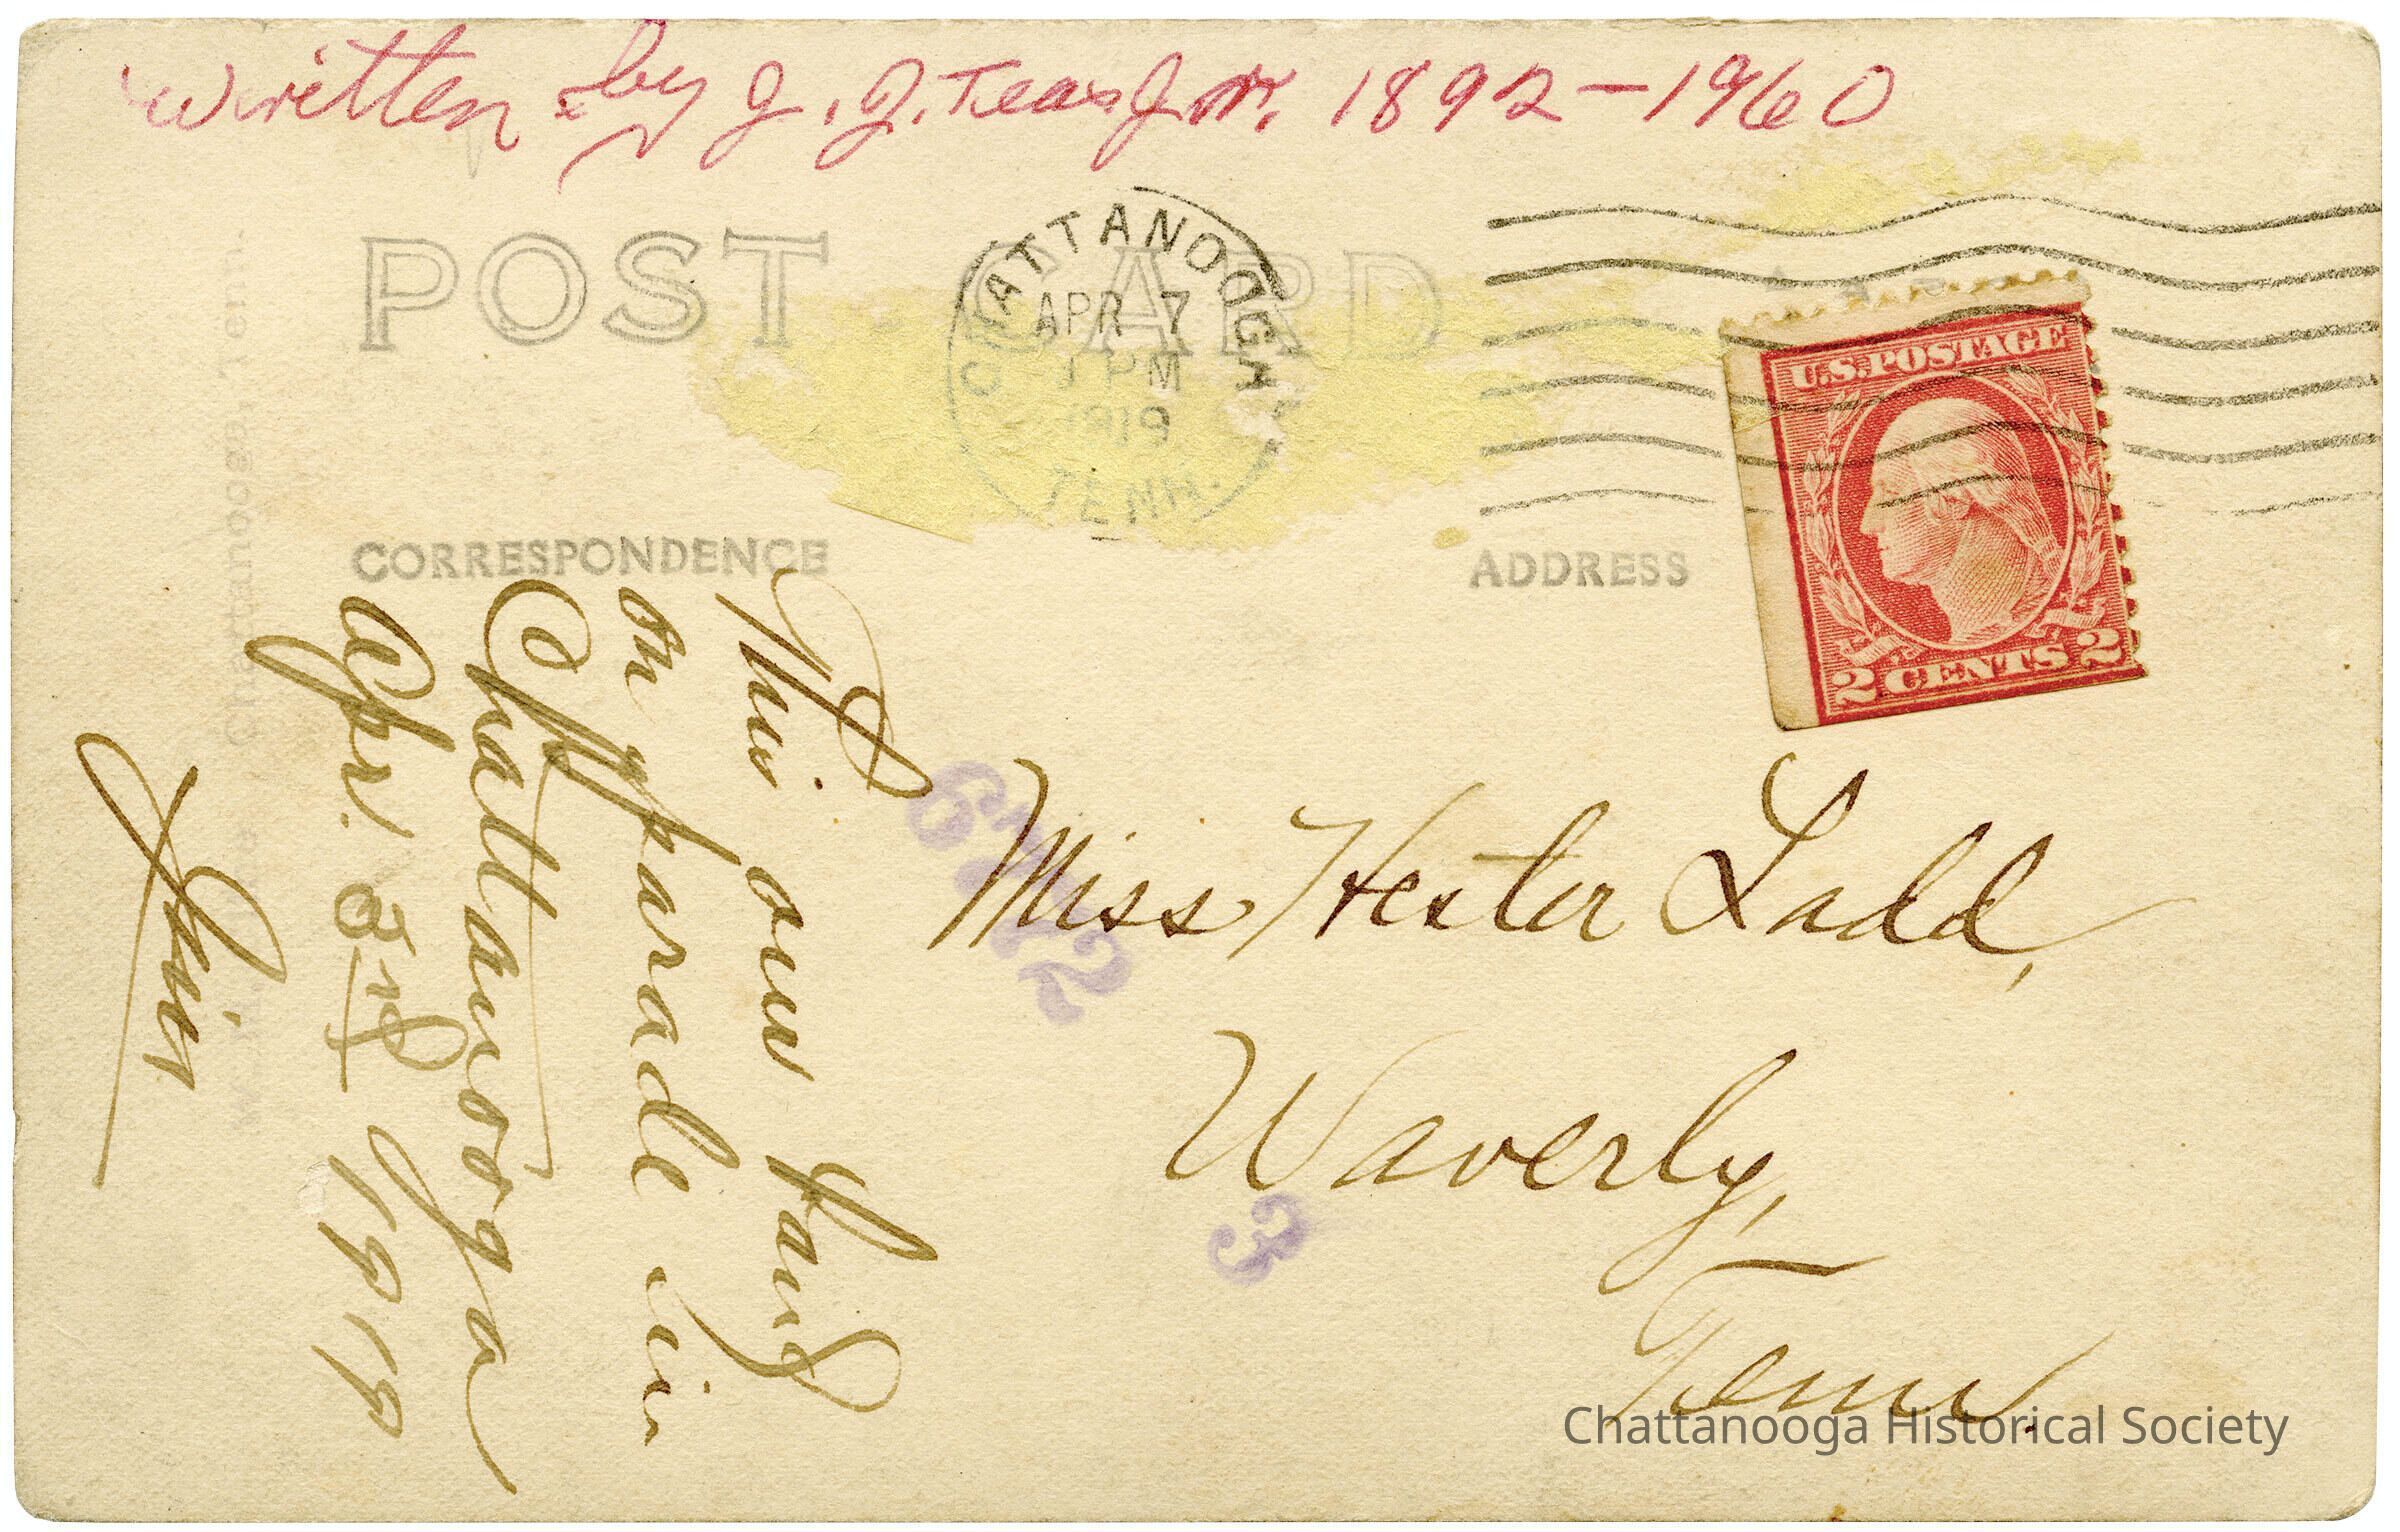 Written by J. J. Teas Jr. 1892-1960
POST CARD
CHATTANOOGA
APR 7
PM
1919
TENN.
U.S. POSTAGE
2 CENTS 2
CORRESPONDENCE
ADDRESS
This our band
on parade in
Chattanooga
Apr. 3rd 1919
Jim
Miss Hester Ladd,
Waverly,
Tenn.
3
Chattanooga Historical Society